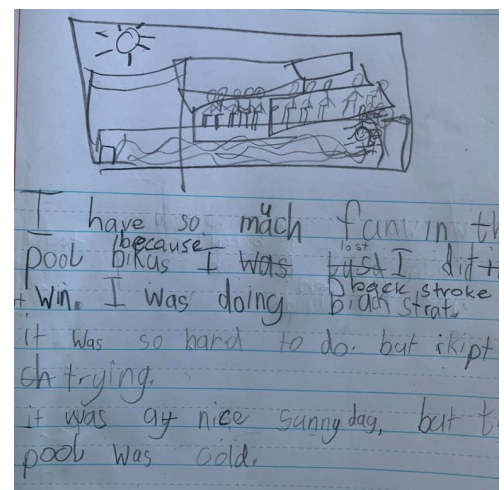 I have so much fun in th
because lost
pool bikus I was I dit
back stroke
+ win. I was doing
it was so hard to do. but ikipt
on trying.
it was a nice sunny day, but t
pool was cold.